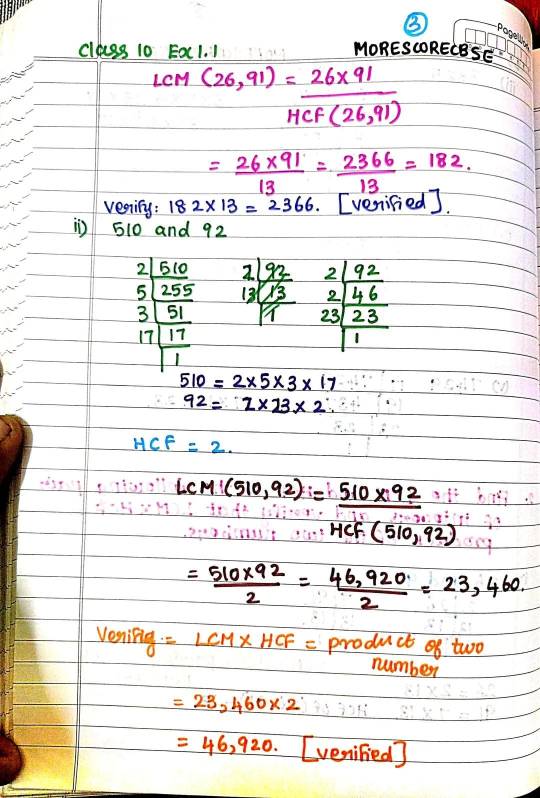 3
Class 10 Ex 1.1 MORESCORECBSE
LCM (26,91) = 26×91
HCF (26,91)
= 26×91 = 2366 = 182.
13 13
Verify: 182×13 = 2366. [verified].
ii) 510 and 92
2 510 7 92 2 92
5 255 13 13 2 46
3 51 1 23 23
17 17 1
1
510 = 2×5×3×17
92 = 2×23×2.
HCF = 2.
LCM (510,92) = 510×92
HCF (510,92)
= 510×92 = 46,920 = 23,460.
2 2
Verifig = LCM × HCF = product of two
number
= 23,460×2
= 46,920. [verified]